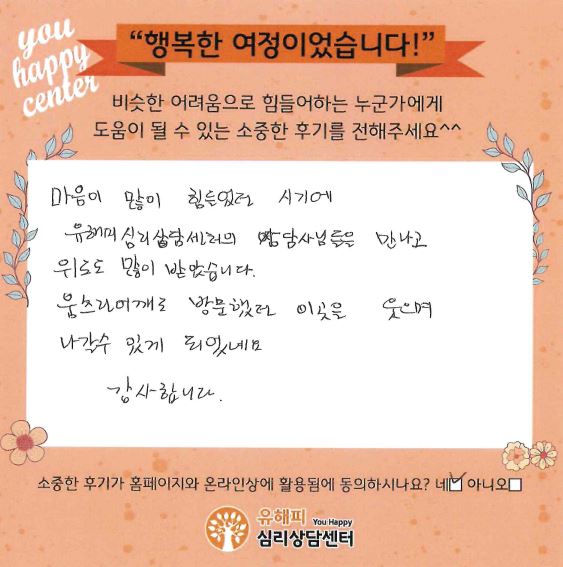 you
happy
center
“행복한 여정이었습니다!”
비슷한 어려움으로 힘들어하는 누군가에게
도움이 될 수 있는 소중한 후기를 전해주세요^^
마음이 많이 힘들었던 시기에
유해피심리상담센터의 상담사님들을 만나고
위로도 많이 받았습니다.
움츠린어깨로 방문했던 이곳을 웃으며
나갈수 있게 되었네요
감사합니다.
소중한 후기가 홈페이지와 온라인상에 활용됨에 동의하시나요? 네 아니오
유해피 You Happy
심리상담센터